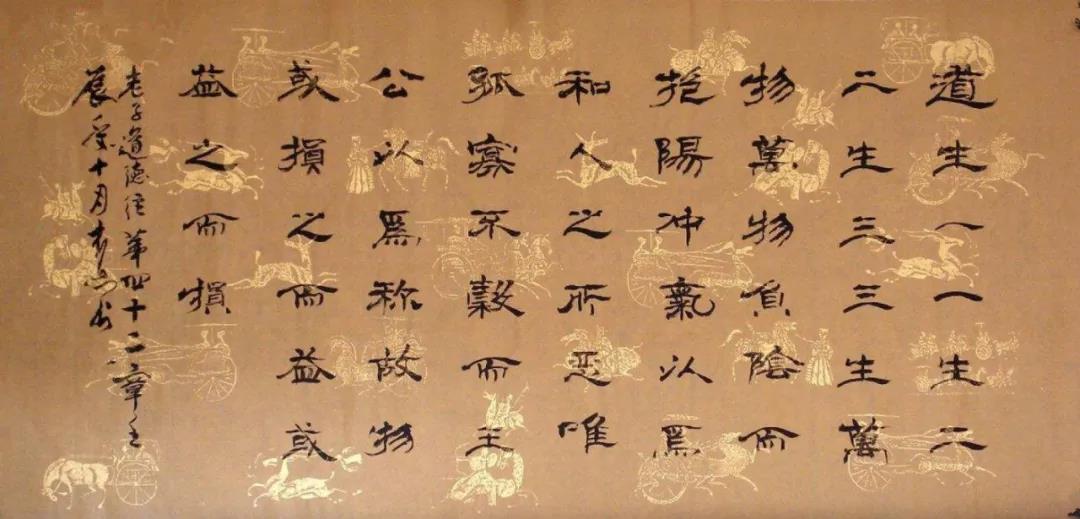 道生一一生二
二生三三生萬
物萬物負陰而
抱陽冲氣以爲
和人之所惡唯
孤寡不穀而王
公以爲称故物
或損之而益或
益之而損
老子道德经第四十二章壬
辰十月